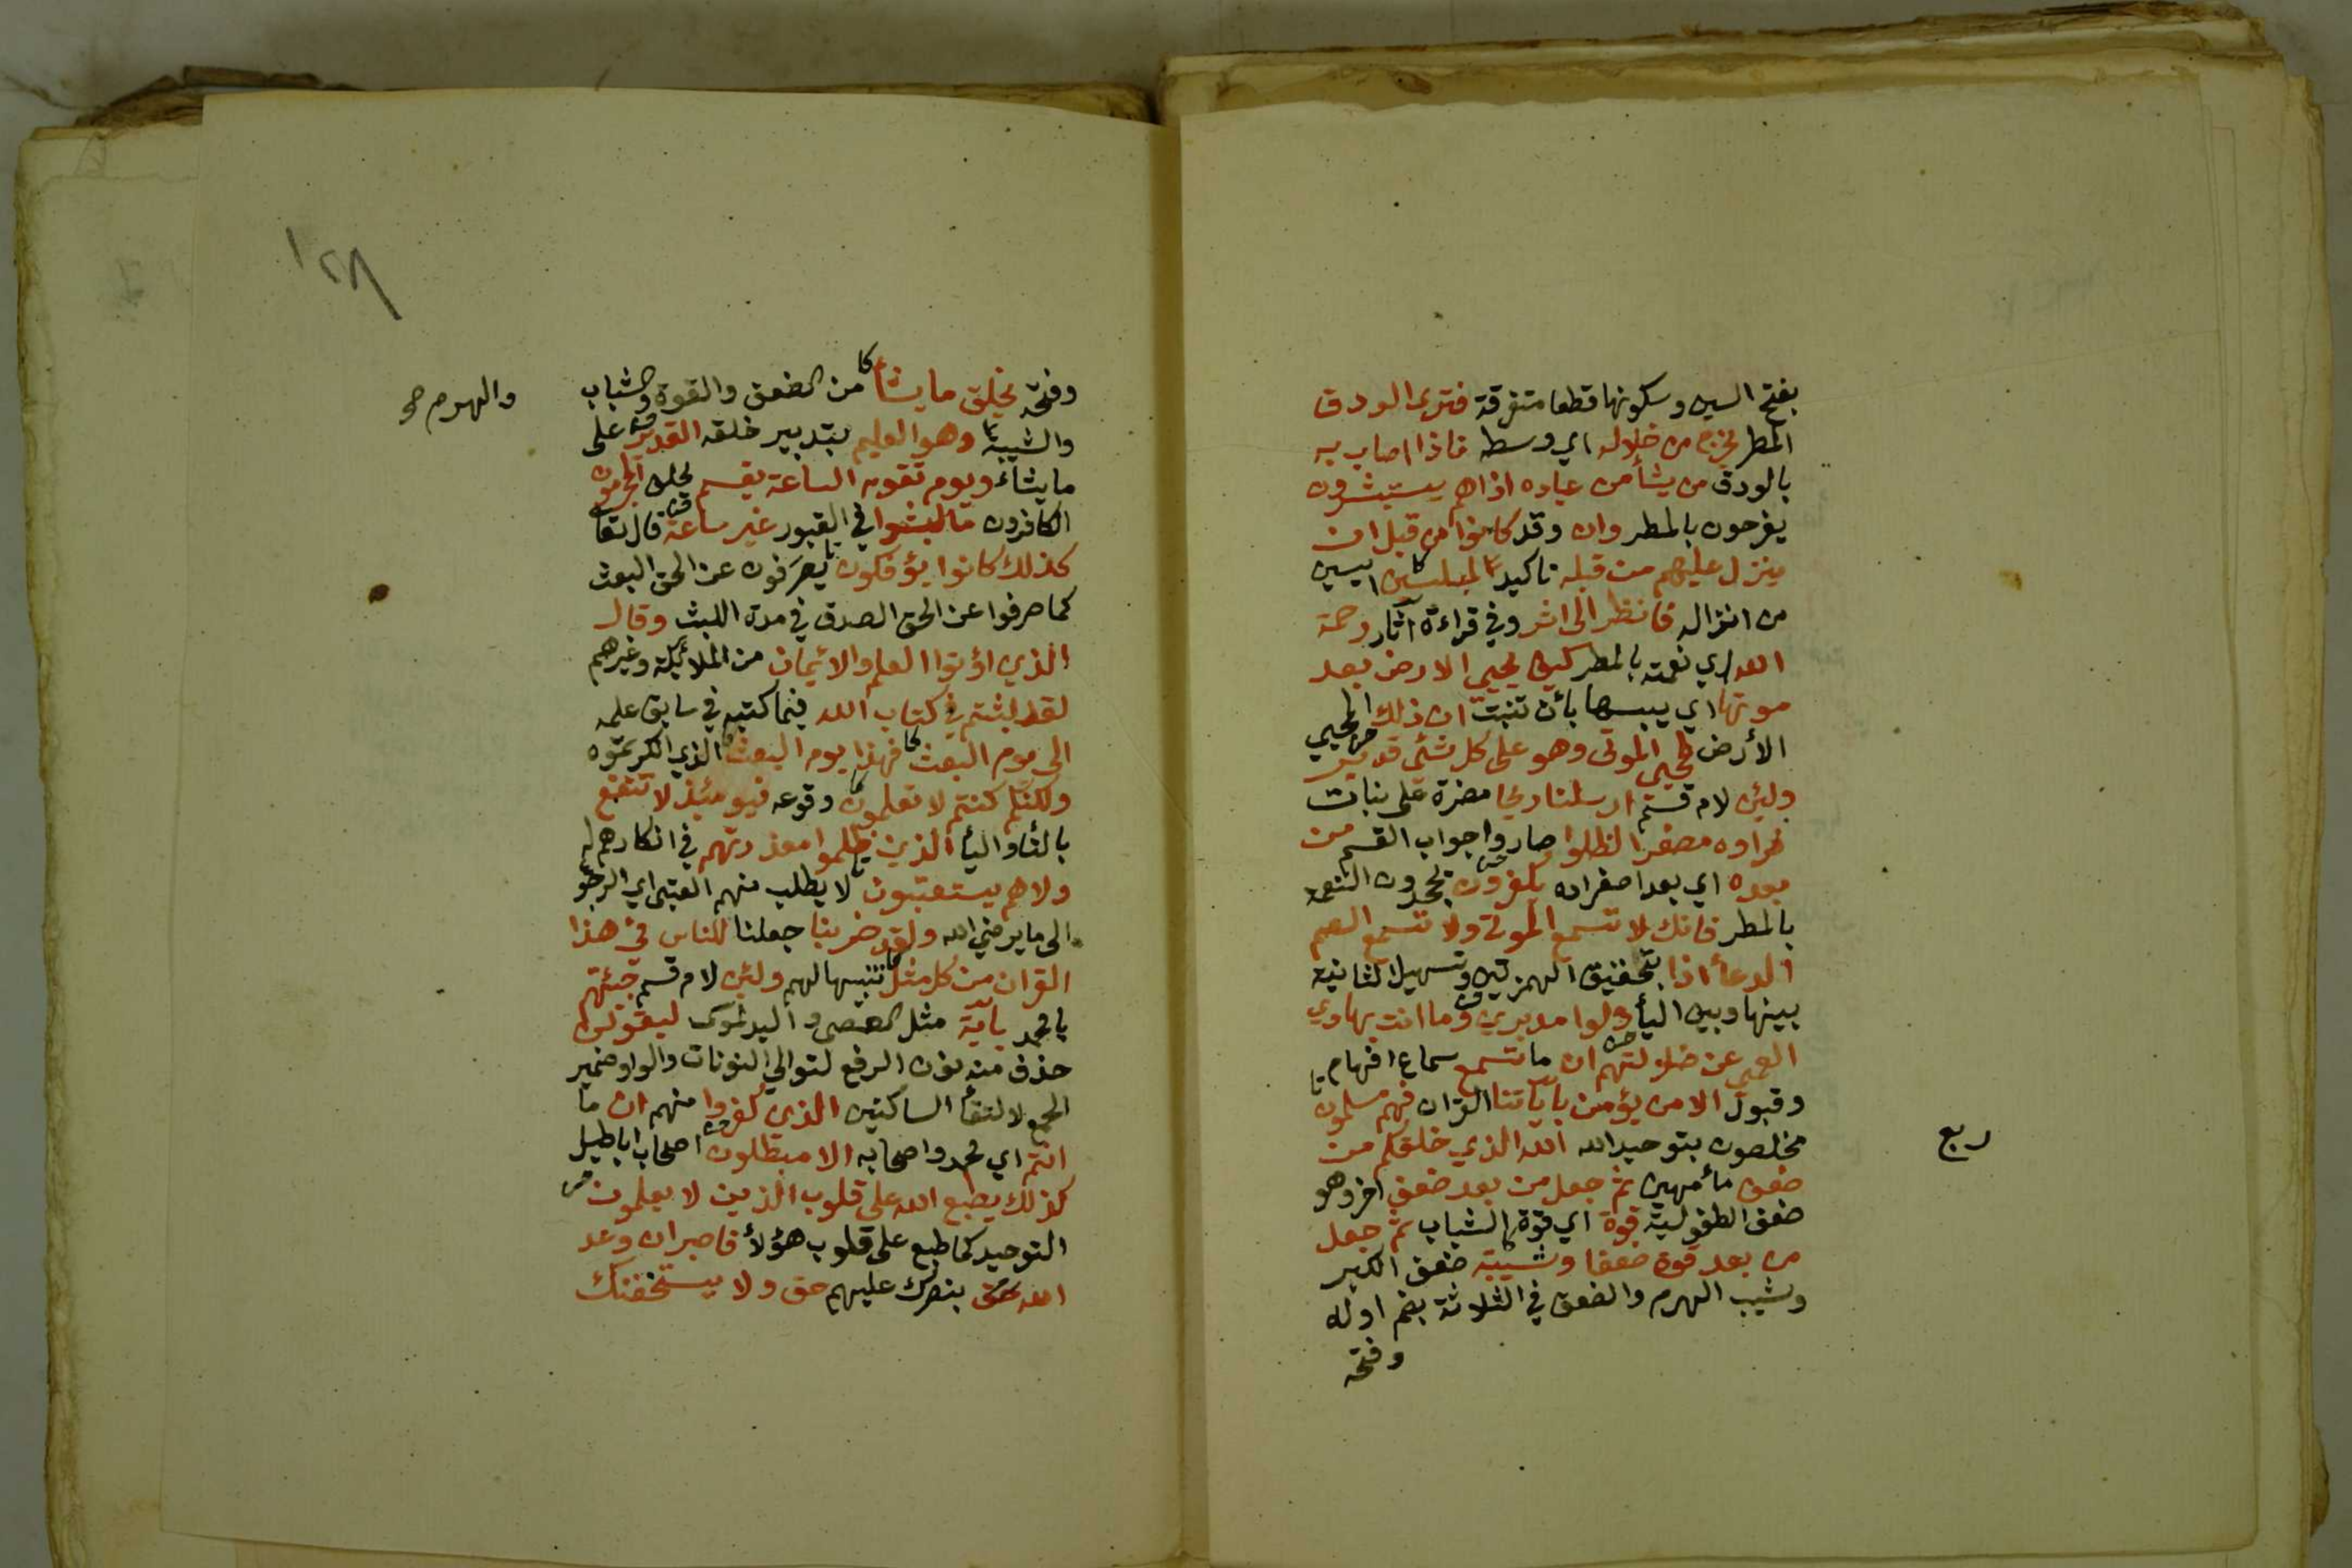 بفتح السين وسكونها قطعا متفرقة فترى الودق
المطر يخرج من خلاله اي وسطه فاذا اصاب به
بالودق من يشأ من عباده اذا هم يستبشرون
يفرحون بالمطر وان وقد كانوا من قبل ان
ينزل عليهم من قبله تاكيد لمبلسين ايسين
من انزاله فانظر الى اثر وفي قراءة آثار رحمة
الله اي نعمته بالمطر كيف يحيي الارض بعد
موتها اي يبسها بأن تنبت ان ذلك المحيي
الأرض لمحيي الموتى وهو على كل شئ قدير
ولئن لام قسم ارسلنا ريحا مضرة على نبات
فراوه مصفرا لظلوا صاروا جواب القسم من
بعده اي بعد اصفراره يكفرون يجحدون النعمة
بالمطر فانك لا تسمع الموتى ولا تسمع الصم
الدعأ اذا بتحقيق الهمزتين وتسهيل الثانية
بينها وبين اليأ ولوا مدبرين وما انت بهادي
العمي عن ضلولتهم ان ما تسمع سماع افهام
وقبول الا من يؤمن بآياتنا القران فهم مسلمون
مخلصون بتوحيد الله الله الذي خلقكم من
ربع
ضعف مأ مهين ثم جعل من بعد ضعف اخر وهو
ضعف الطفولية قوة اي قوة الشباب ثم جعل
من بعد قوة ضعفا وشيبة ضعف الكبر
وشيب الهرم والضعف في الثلاثة بضم اوله
وفتحه
١٢٨
وفتحه يخلق ما يشأ من الضعف والقوة والشباب
والهرم صح
والشيبة وهو العليم بتدبير خلقه القدير على
ما يشاء ويوم تقوم الساعة يقسم يحلف المجرمون
الكافرون ما لبثوا في القبور غير ساعة قال تعا
كذلك كانوا يؤفكون يصرفون عن الحق البعث
كما صرفوا عن الحق الصدق في مدة اللبث وقال
الذين اؤتوا العلم والائيمان من الملائكة وغيرهم
لقد لبثتم في كتاب الله فيما كتبه في سابق علمه
الى يوم البعث فهذا يوم البعث الذي انكرتموه
ولكنكم كنتم لا تعلمون وقوعه فيومئذ لا تنفع
بالتأ واليأ الذين ظلموا معذرتهم في انكارهم له
ولا هم يستعتبون لا يطلب منهم العتبى اي الرجو
الى ما يرضي الله ولقد ضربنا جعلنا للناس في هذا
القران من كل مثل تنبيها لهم ولئن لام قسم جئتهم
يا محمد بآية مثل العصى واليد لموسى ليقولن
حذف منه نون الرفع لتوالي النونات والواو ضمير
الجمع لالتقأ الساكنين الذين كفروا منهم ان ما
انتم اي محمد واصحابه الا مبطلون اصحاب اباطيل
كذلك يطبع الله على قلوب الذين لا يعلمون
التوحيد كما طبع على قلوب هؤلأ فاصبر ان وعد
الله حق بنصرك عليهم حق ولا يستخفنك